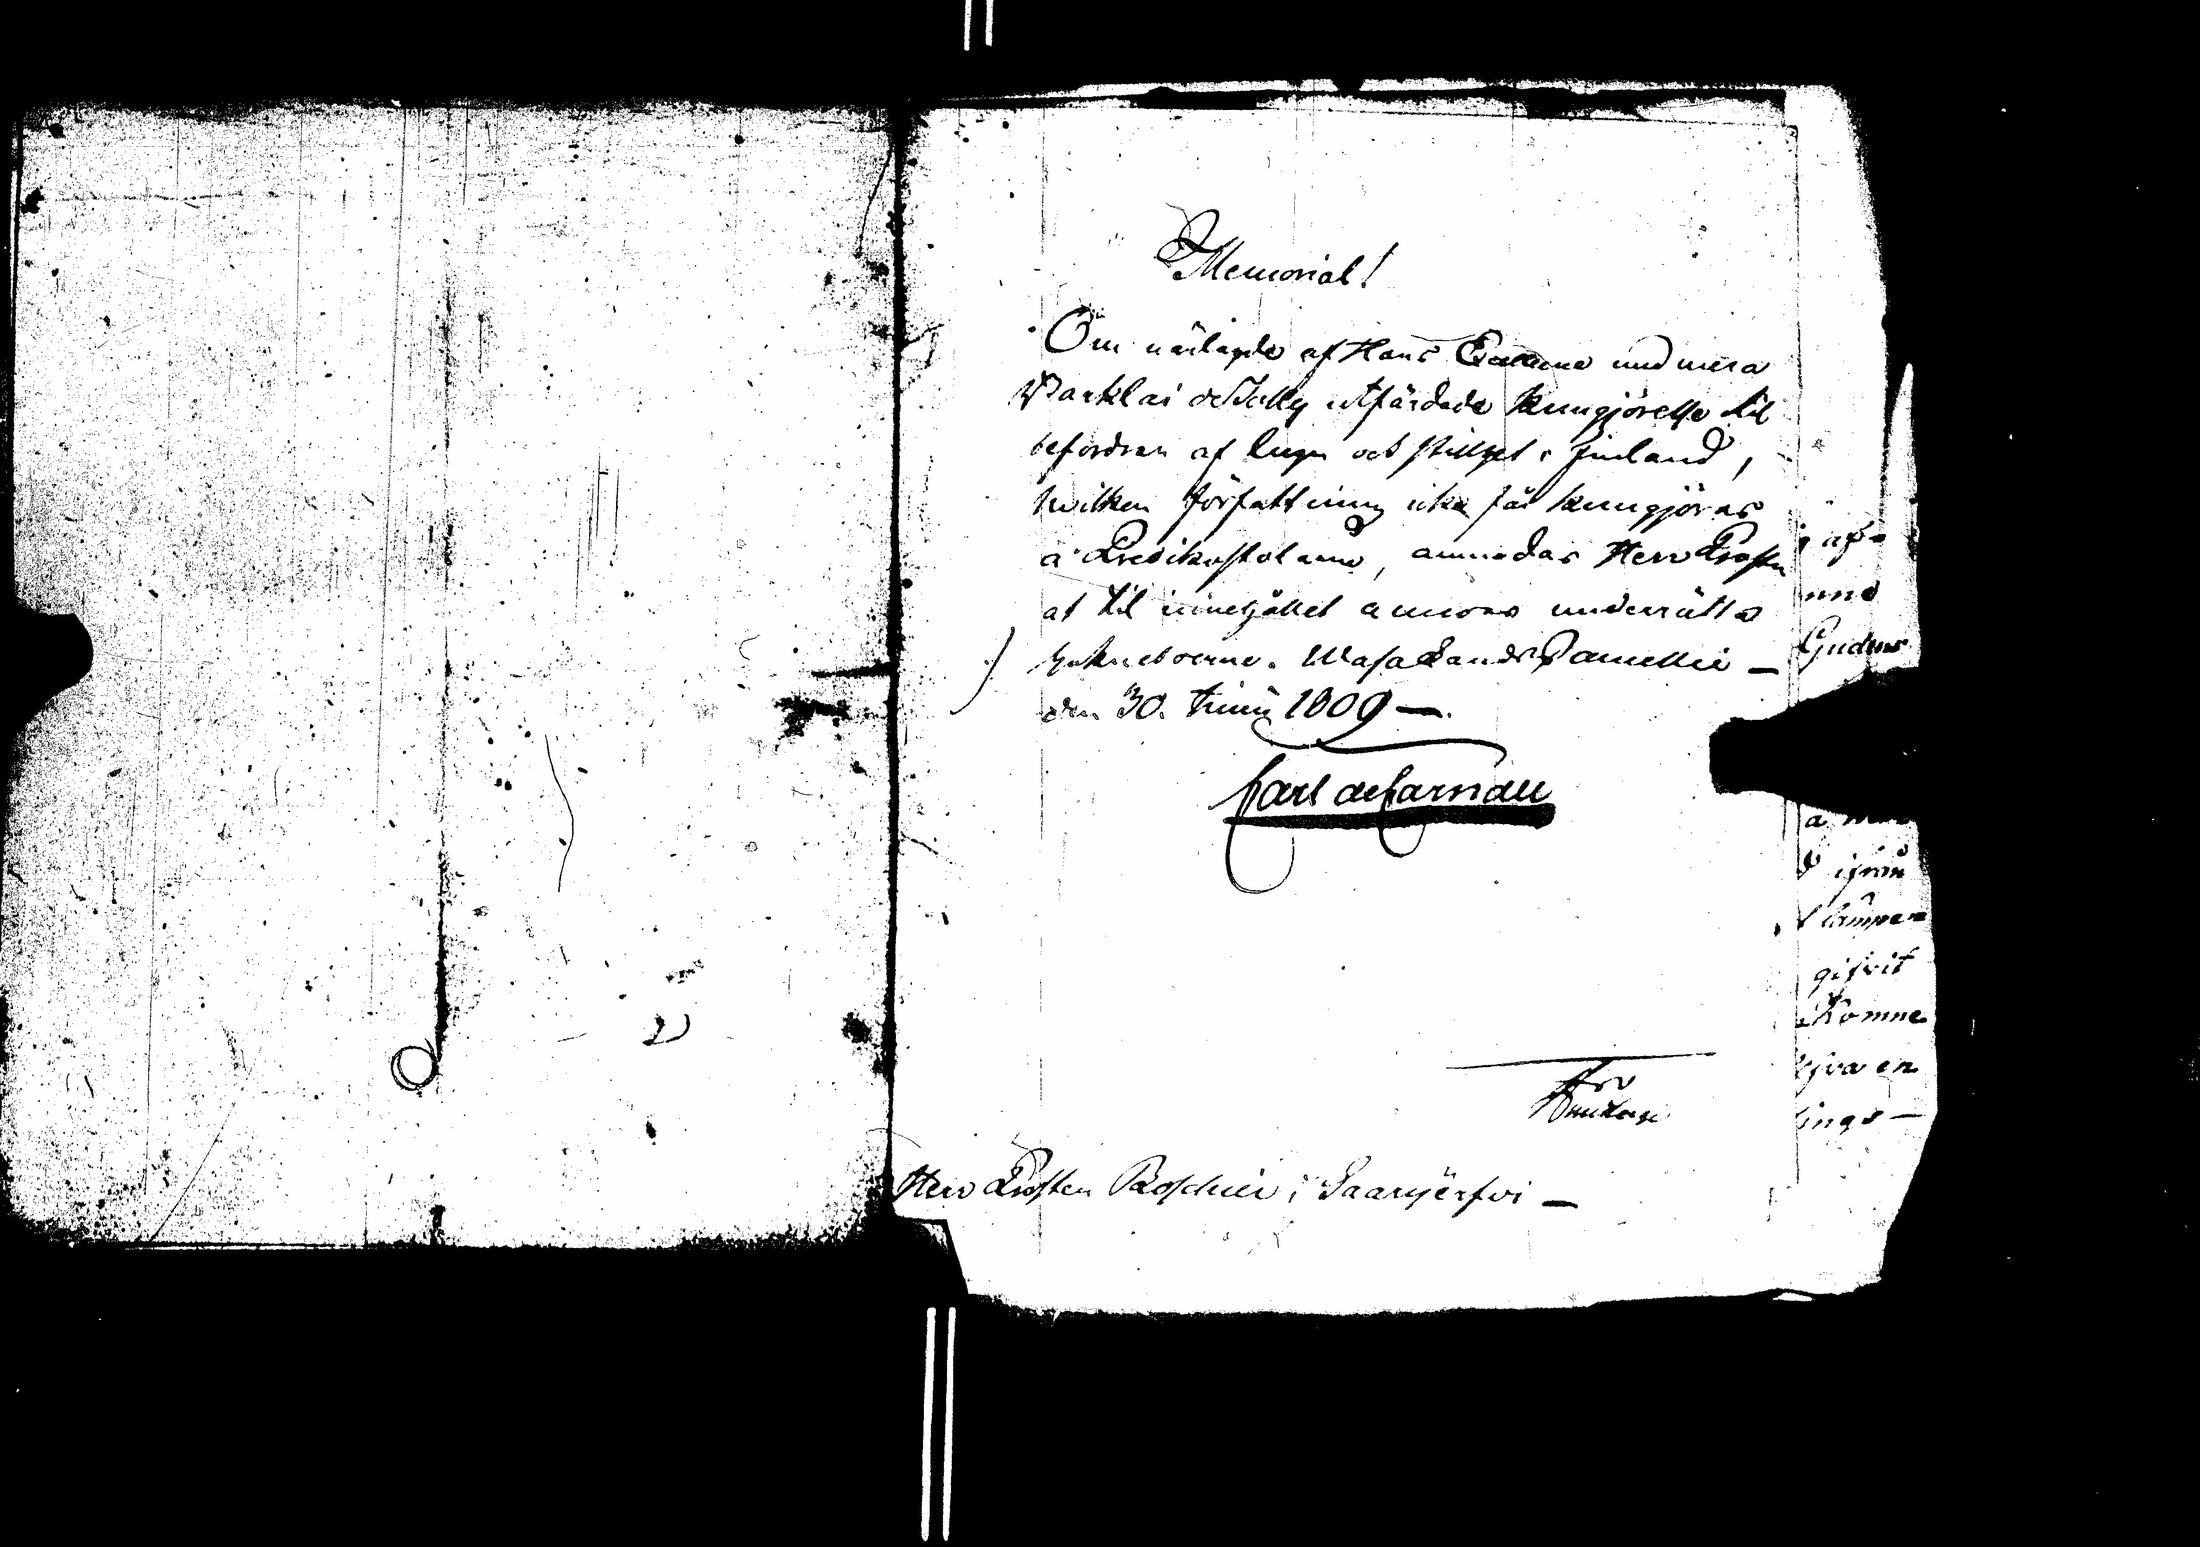 Memorial!
Om närlagde af Hans Excellence med mera
Barklai de Tolly utfärdade kungjörelse til
befordran af lugn och stillhet i Finland,
hwilken författning icke får kungjöras
å Predikostolarne, anmodas Herr Prosten
at til innehållet annors underrätta
Sokneboerne. Wasa Lands Cancellie —
den 30. Junii 1809 —.
Carl de Carnall
Herr Prosten Roschier i Saarijerfwi —
af
und
Gudens
a
ifrån
gifvit
komne
en
ings —